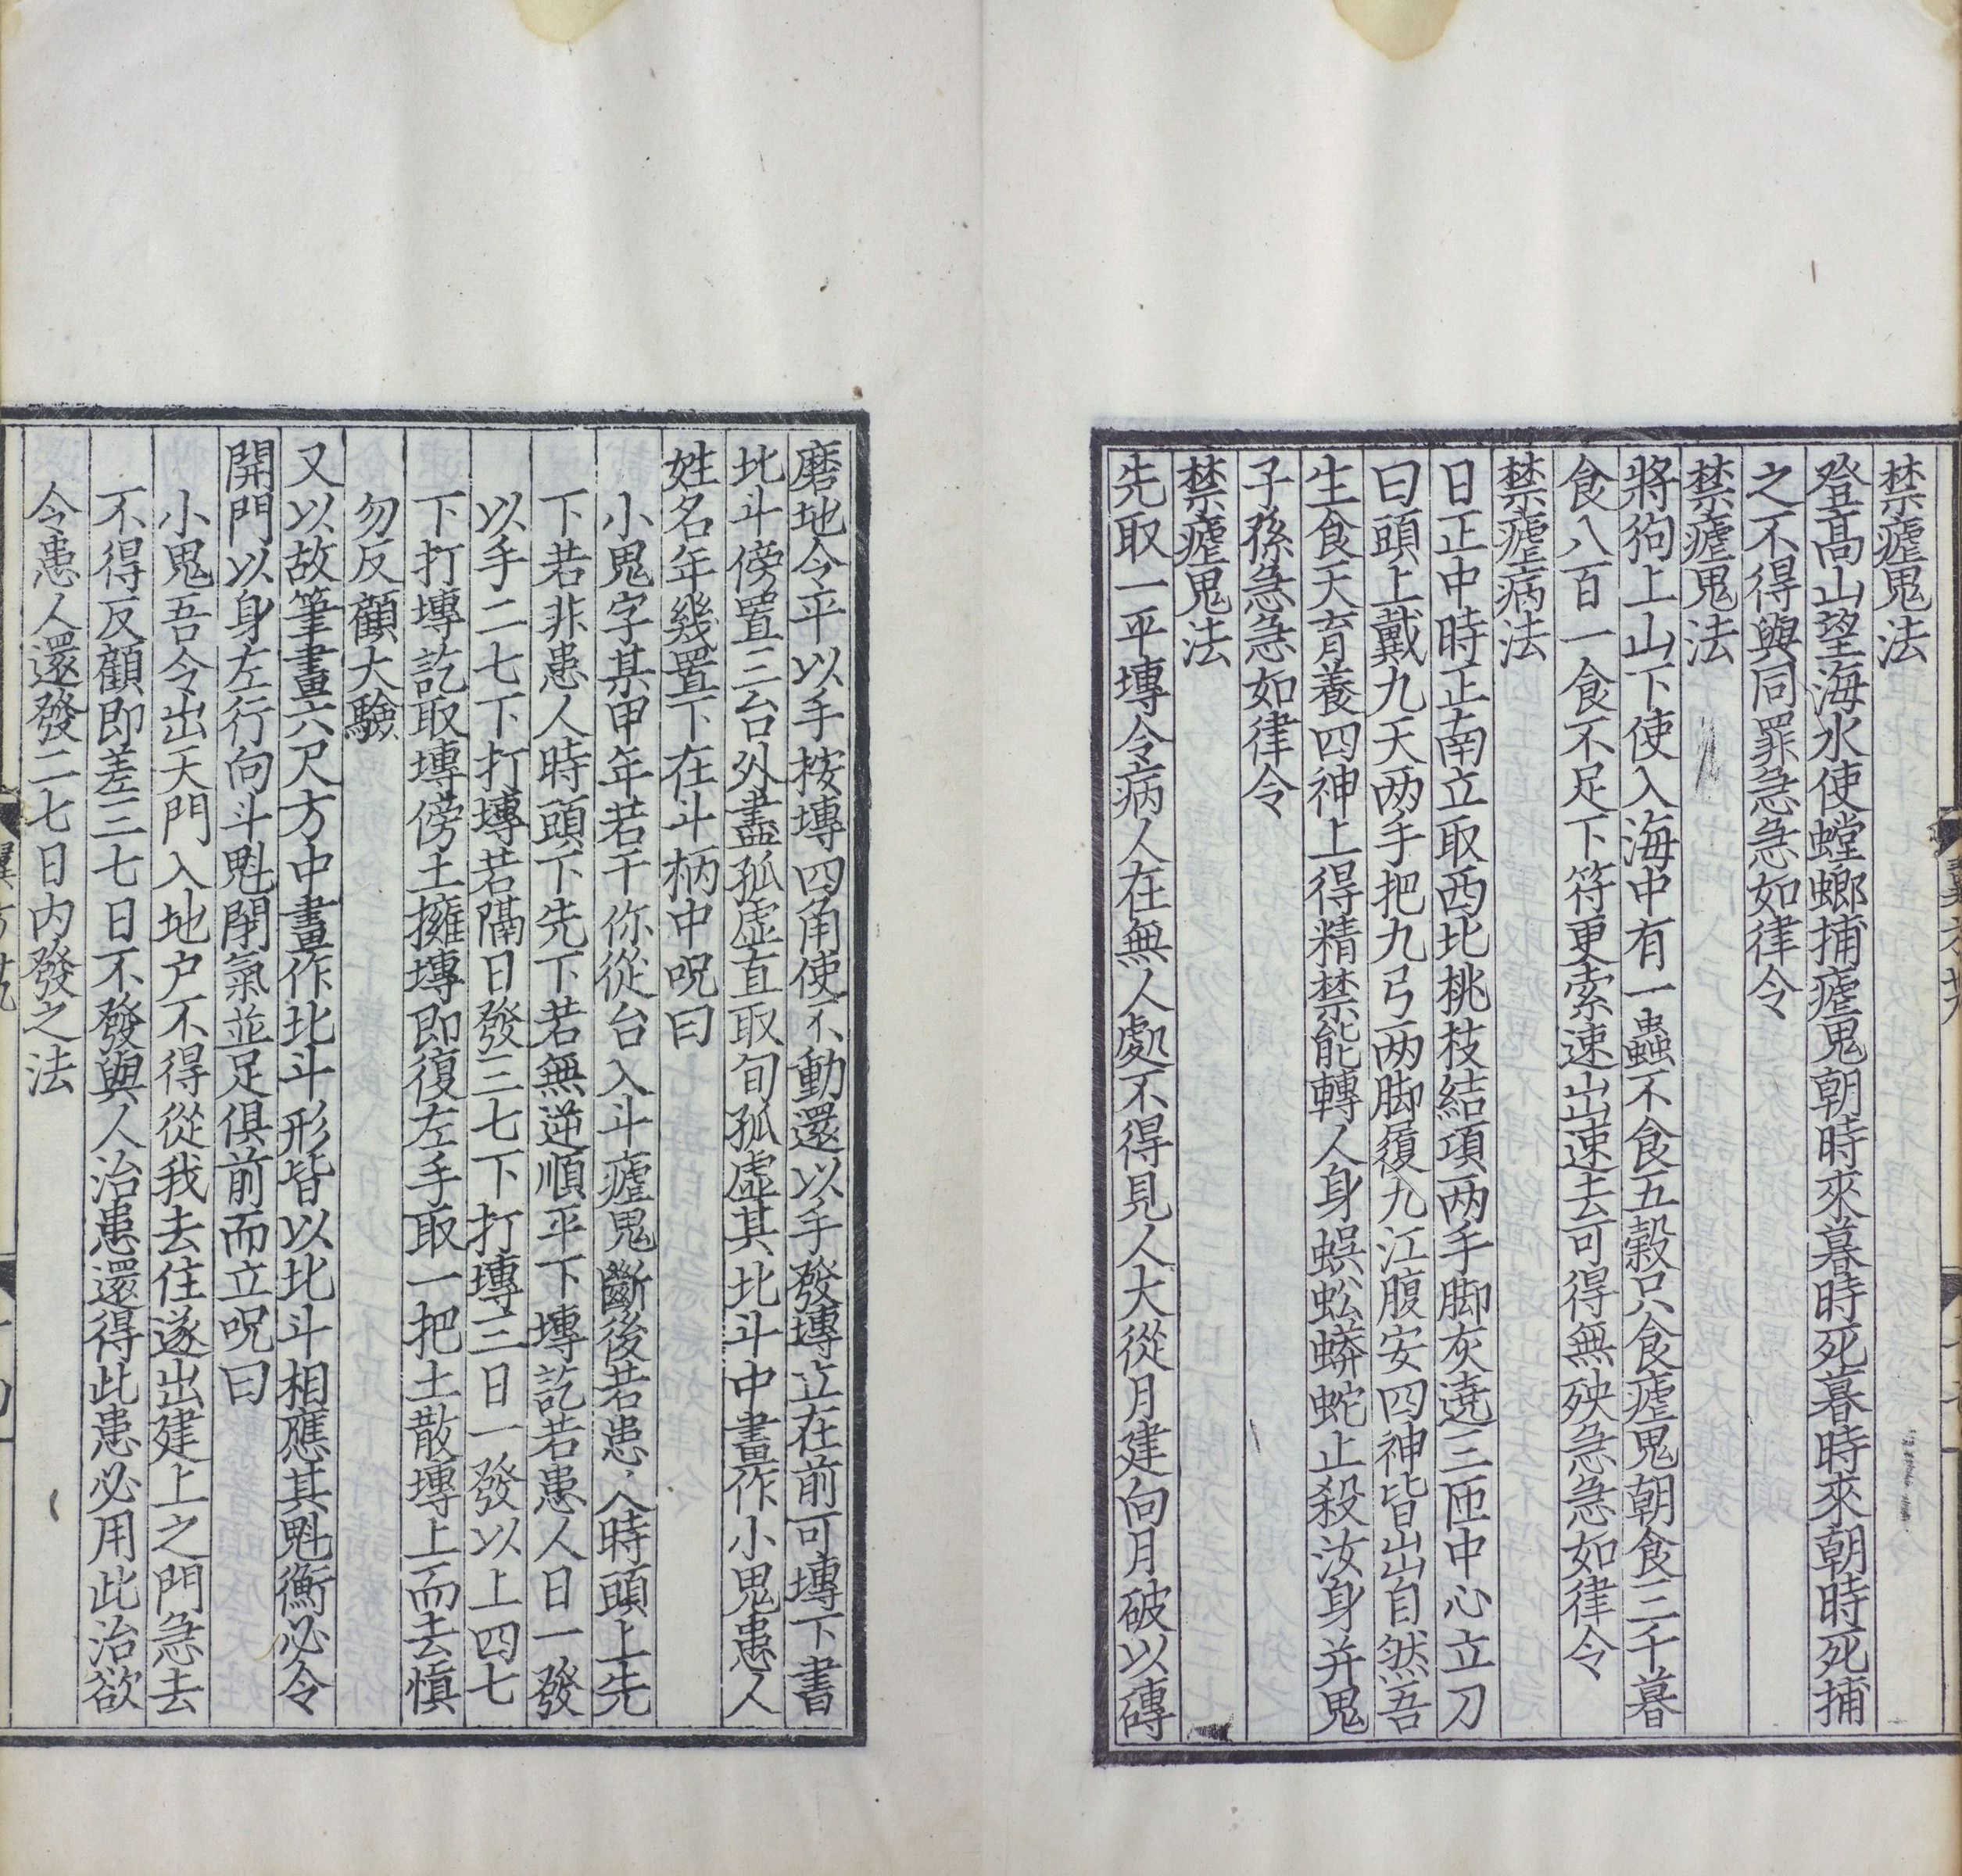 禁瘧鬼法
登高山望海水使螳螂捕瘧鬼朝時來暮時死暮時來朝時死捕
之不得與同罪急急如律令
禁瘧鬼法
將狗上山下使入海中有一蟲不食五穀只食瘧鬼朝食三千暮
食八百一食不足下符更索速出速去可得無殃急急如律令
禁瘧病法
日正中時正南立取西北桃枝結項两手脚灰遶三匝中心立刀
曰頭上戴九天两手把九弓两脚履九江腹安四神皆出自然吾
生食天育養四神上得精禁能轉人身蜈蚣蟒蛇止殺汝身并鬼
子孫急急如律令
禁瘧鬼法
先取一平塼令病人在無人處不得見人大從月建向月破以磚
磨地令平以手按塼四角使不動還以手發塼立在前可塼下書
北斗傍置三台外盡孤虛直取旬孤虛其北斗中畫作小鬼患人
姓名年幾置下在斗柄中呪曰
小鬼字某甲年若干你從台入斗瘧鬼斷後若患人時頭上先
下若非患人時頭下先下若無逆順平下塼訖若患人日一發
以手二七下打塼若隔日發三七下打塼三日一發以上四七
下打塼訖取塼傍土擁塼即復左手取一把土散塼上而去慎
勿反顧大驗
又以故筆畫六尺方中畫作北斗形皆以北斗相應其魁衡必令
開門以身左行向斗魁閉氣並足俱前而立呪曰
小鬼吾令出天門入地户不得從我去住遂出建上之門急去
不得反顧即差三七日不發與人治患還得此患必用此治欲
令患人還發二七日內發之法